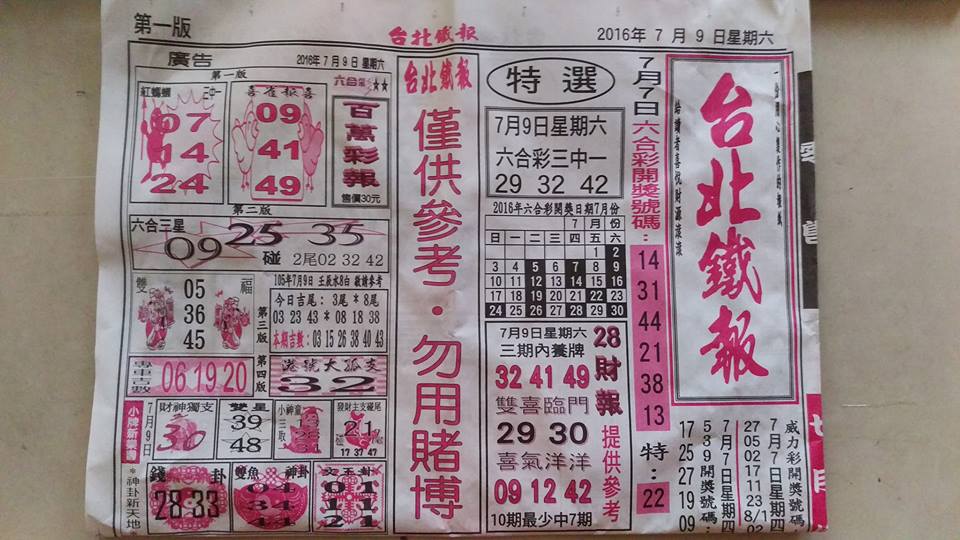 第一版
台北鐵報
2016年 7 月 9 日星期六
廣告
2016年 7 月 9 日 星期六
第一版
三中一
07
14
24
喜雀報喜
09
41
49
六合彩★★
百萬彩報
售價30元
第二版
六合三星
09 25 35
碰 2尾02 32 42
雙福
05
36
45
105年7月9日 壬辰水8白 敬請參考
今日吉尾: 3尾 * 8尾
03 23 43 * 08 18 38
本期吉數: 03 15 26 38 40 43
第三版
專車吉數
06 19 20
第四版
港號大孤支
32
小牌新樂園
7月9日
財神獨支
30
雙星
39
48
小神童
三取
發財主支碰尾
21
17 37 47
*神卦新天地*
錢卦
28.33
雙魚神卦
04
34
44
文王卦
01
11
21
台北鐵報
僅供參考·勿用賭博
特選
7月9日星期六
六合彩三中一
29 32 42
2016年六合彩開獎日期7月份
7 月份
日 一 二 三 四 五 六
1 2
3 4 5 6 7 8 9
10 11 12 13 14 15 16
17 18 19 20 21 22 23
24 25 26 27 28 29 30
7月9日星期六
三期內養牌
32 41 49
雙喜臨門
29 30
喜氣洋洋
09 12 42
10期最少中7期
28財報
提供參考
7月7日六合彩開獎號碼:
14
31
44
21
38
13
特:
22
台北鐵報
給讀者喜悅財源滾滾
威力彩開獎號碼:
7月7日星期四
27
05
02
17
11
23
8/1
02
7月7日星期四
539開獎號碼:
17
25
27
19
09